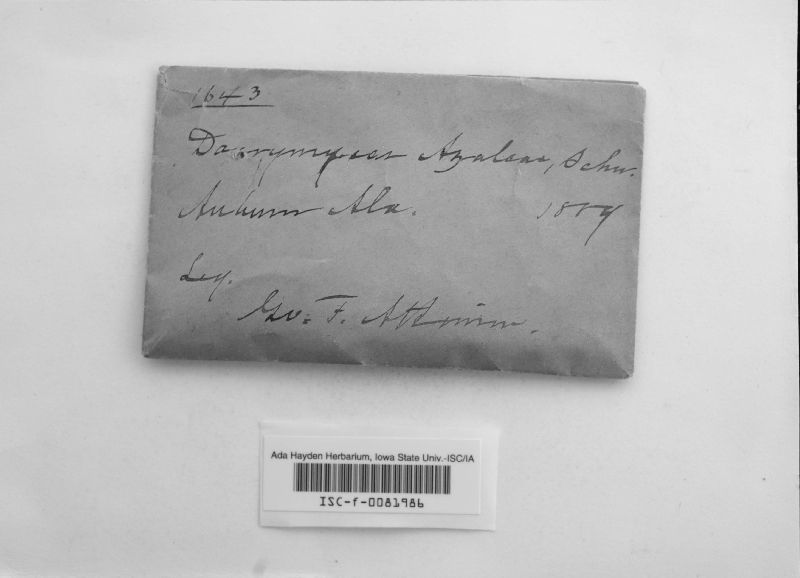 1643
Dasyscypha Azaleae, Schw.
Auburn Ala.
Leg.
Geo. F. Atkinson.
Ada Hayden Herbarium, Iowa State Univ.-ISC/IA
ISC-f-0081986